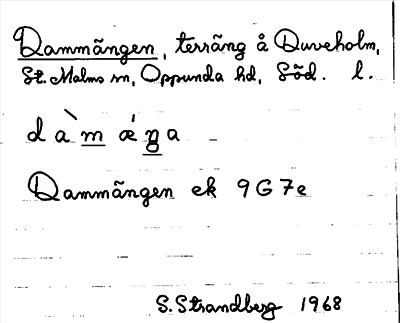 Dammängen, terräng å Duveholm,
St. Malms sn, Oppunda hd, Söd. l.
dàmǽŋa
Dammängen ek 9G7e
S. Strandberg 1968